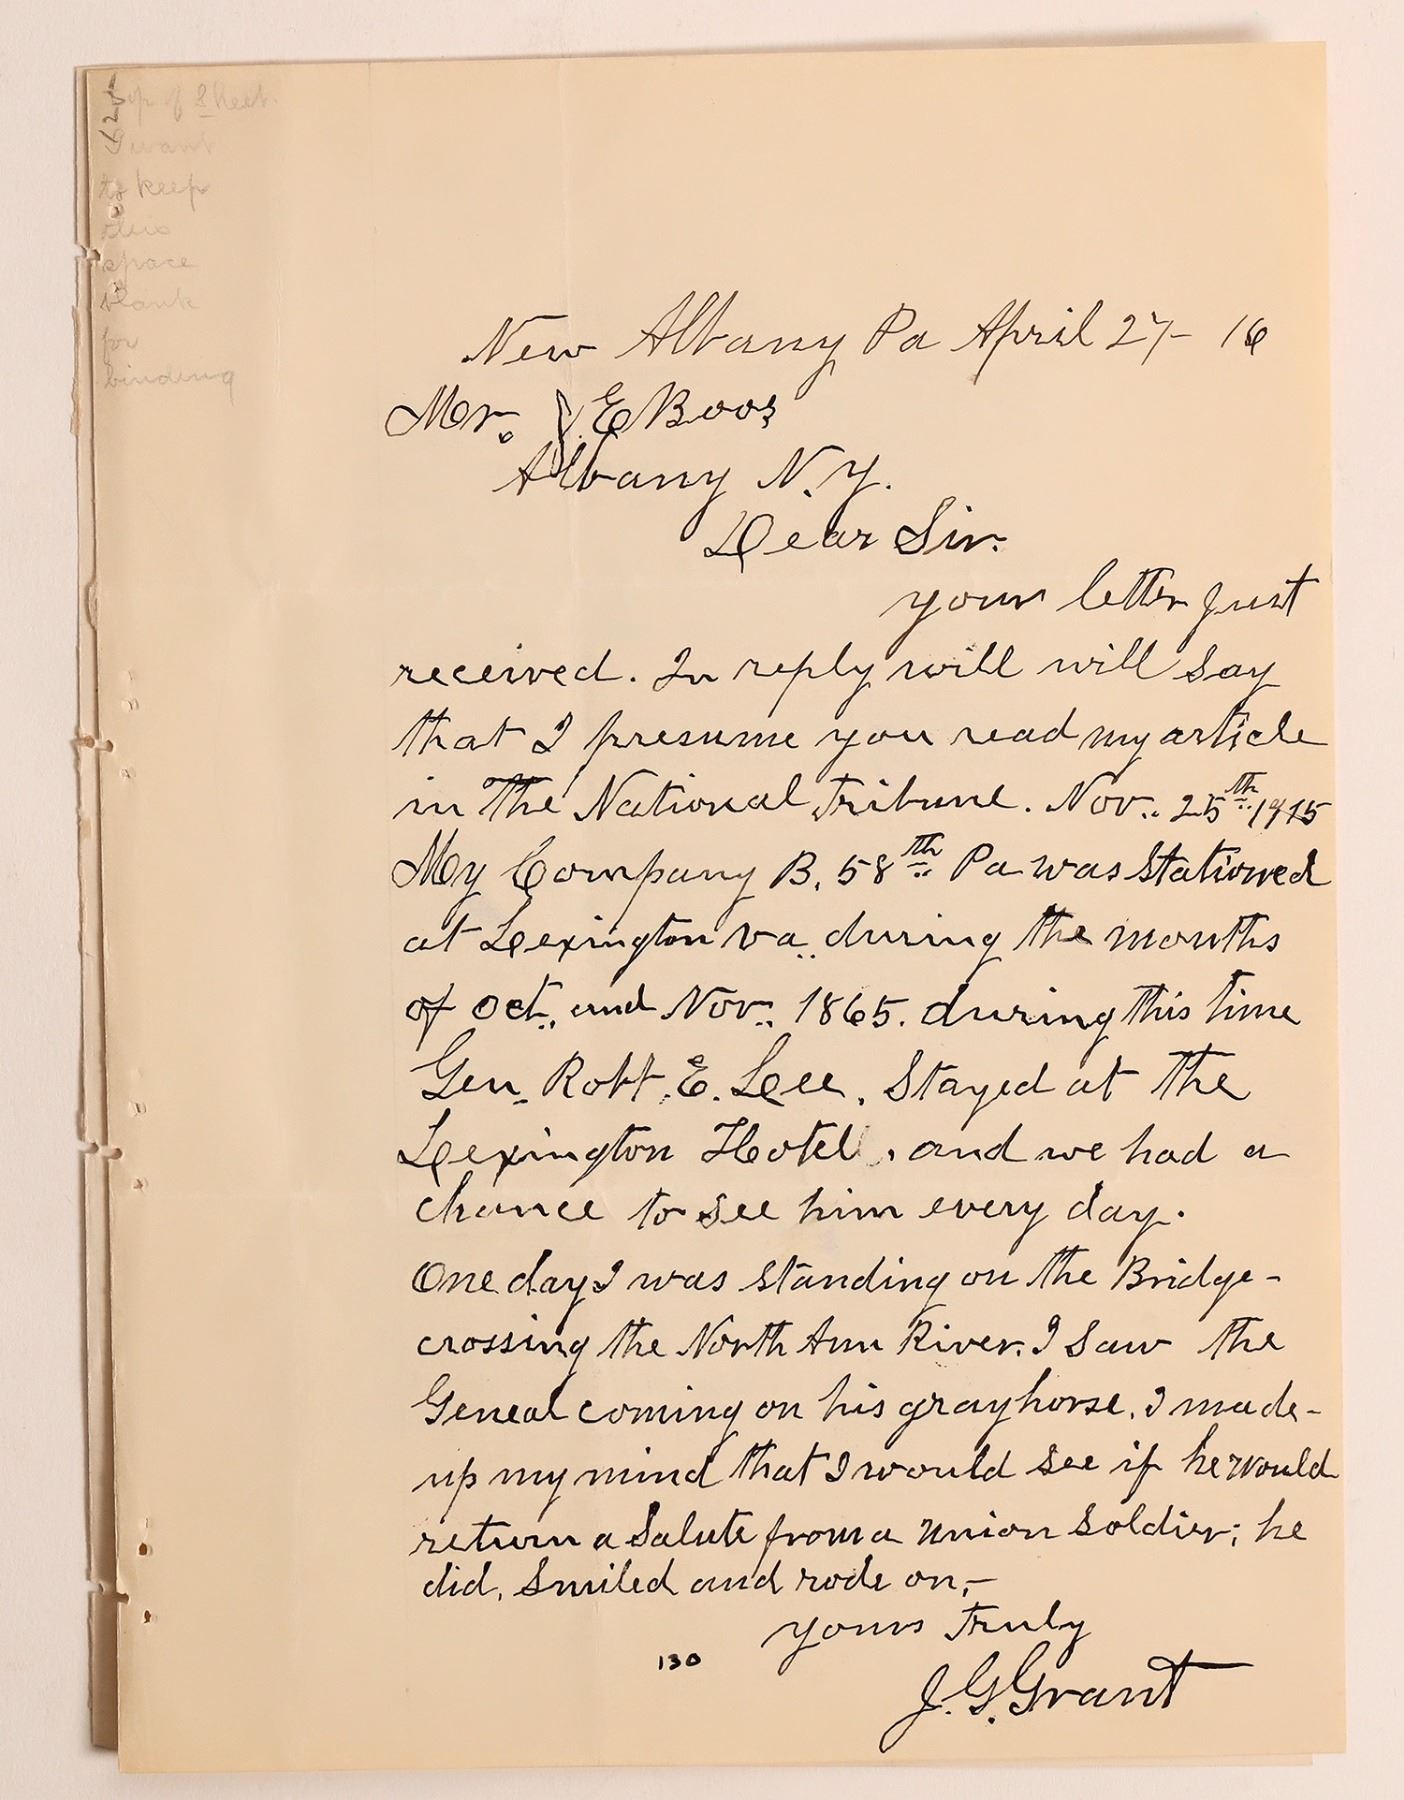 Top of Sheet.
I want
to keep
this
space
blank
for
binding
New Albany Pa April 27- 16
Mr. J. E Boos
Albany N.Y.
Dear Sir.
your letter just
received. In reply will will say
that I presume you read my article
in The National Tribune. Nov.. 25th 1915
My Company B. 58th Pa was Stationed
at Lexington va.. during the months
of Oct.. and Nov.. 1865. during this time
Gen. Robt. E. Lee. Stayed at The
Lexington Hotel. and we had a
chance to see him every day.
One day I was standing on the Bridge-
crossing the North Ann River. I Saw the
Geneal coming on his gray horse. I made-
up my mind that I would see if he would
return a Salute from a Union Soldier; he
did. Smiled and rode on,-
yours Truly
130
J. G. Grant